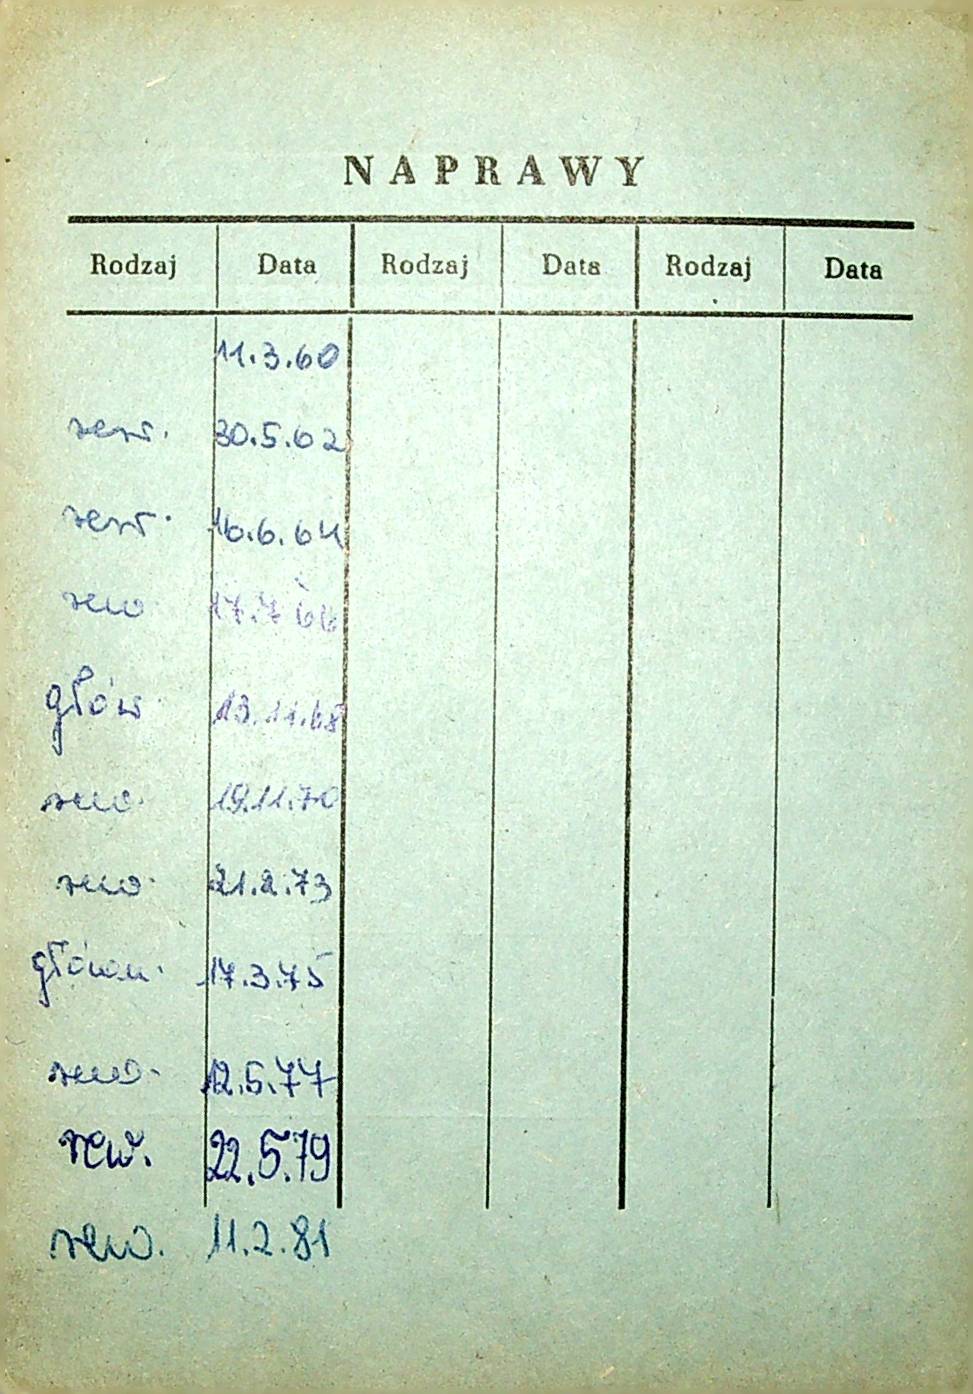 NAPRAWY
Rodzaj Data Rodzaj Data Rodzaj Data
11.3.60
rew. 30.5.62
rew. 16.6.64
rew 17.7.66
głów 13.11.68
rew. 19.11.70
rew. 21.2.73
główn. 17.3.75
rew. 12.5.77
rew. 22.5.79
rew. 11.2.81